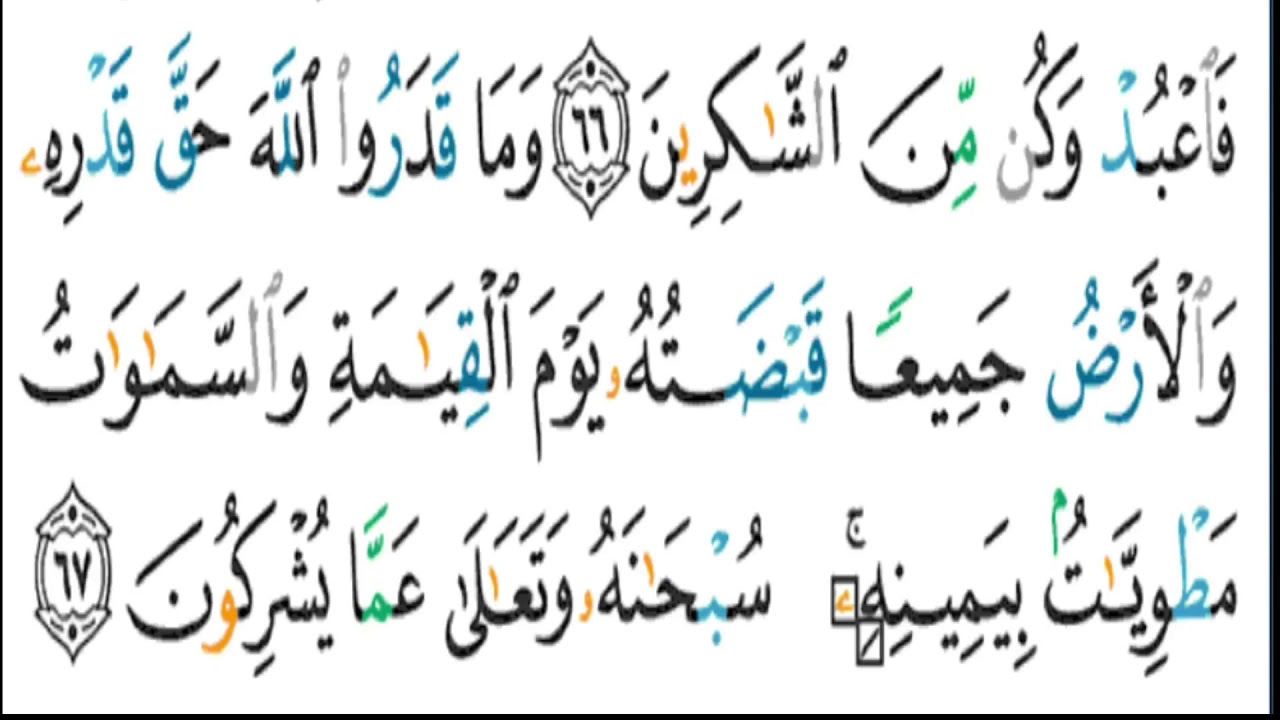 فَٱعْبُدْ وَكُن مِّنَ ٱلشَّٰكِرِينَ ٦٦ وَمَا قَدَرُوا۟ ٱللَّهَ حَقَّ قَدْرِهِۦ
وَٱلْأَرْضُ جَمِيعًا قَبْضَتُهُۥ يَوْمَ ٱلْقِيَٰمَةِ وَٱلسَّمَٰوَٰتُ
مَطْوِيَّٰتٌۢ بِيَمِينِهِۦ ۚ سُبْحَٰنَهُۥ وَتَعَٰلَىٰ عَمَّا يُشْرِكُونَ ٦٧